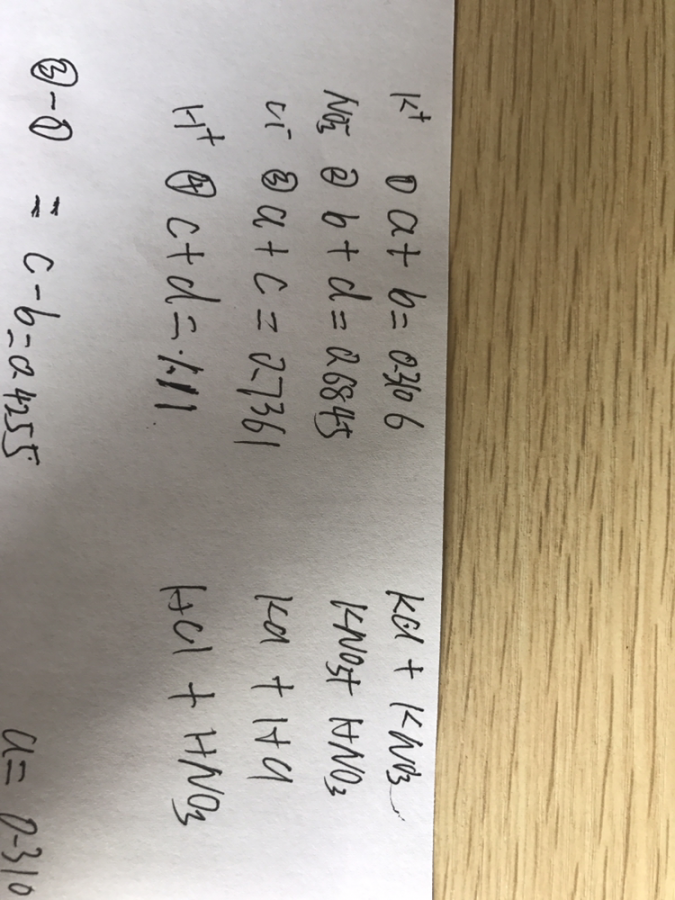 K⁺ ① a + b = 0.3106 KCl + KNO₃
NO₃⁻ ② b + d = 0.6845 KNO₃ + HNO₃
Cl⁻ ③ a + c = 0.7361 KCl + HCl
H⁺ ④ c + d = 1.11 HCl + HNO₃
③ - ① = c - b = 0.4255
a = 0.310